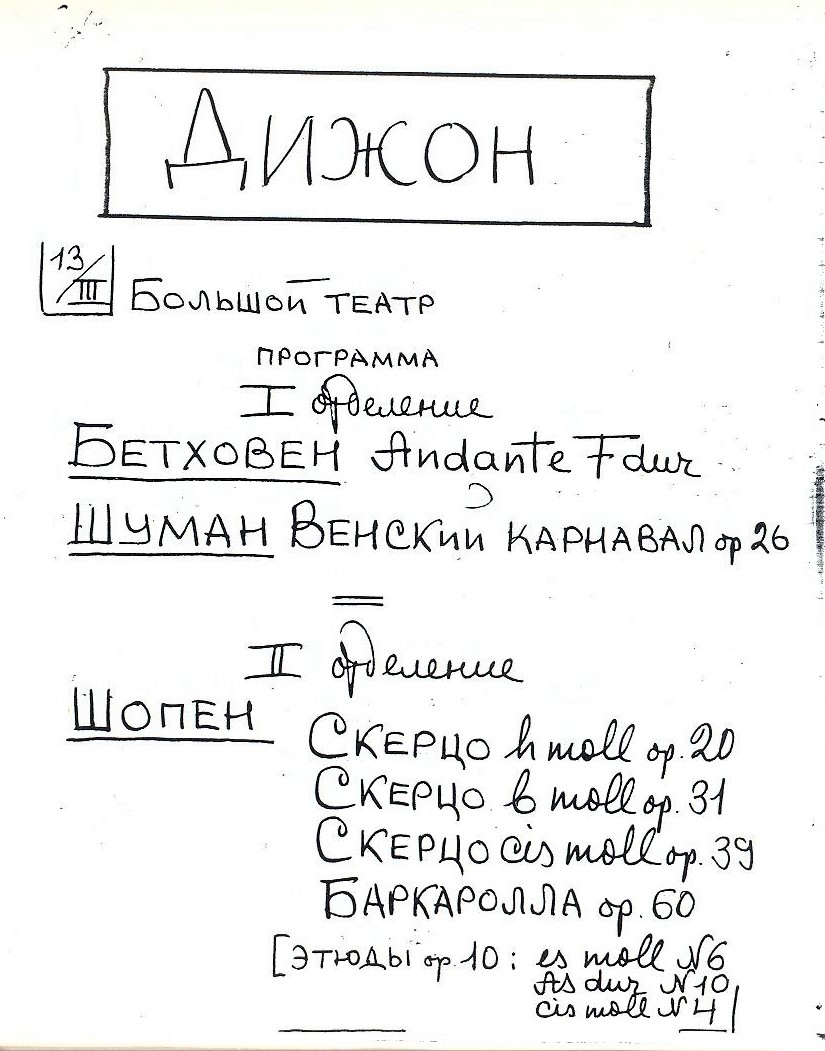 ДИЖОН
13/III Большой театр
программа
I отделение
Бетховен Andante F dur
Шуман Венский карнавал op 26
II отделение
Шопен
Скерцо h moll op. 20
Скерцо b moll op. 31
Скерцо cis moll op. 39
Баркаролла op. 60
[Этюды op. 10: es moll N6
As dur N10
cis moll N4]